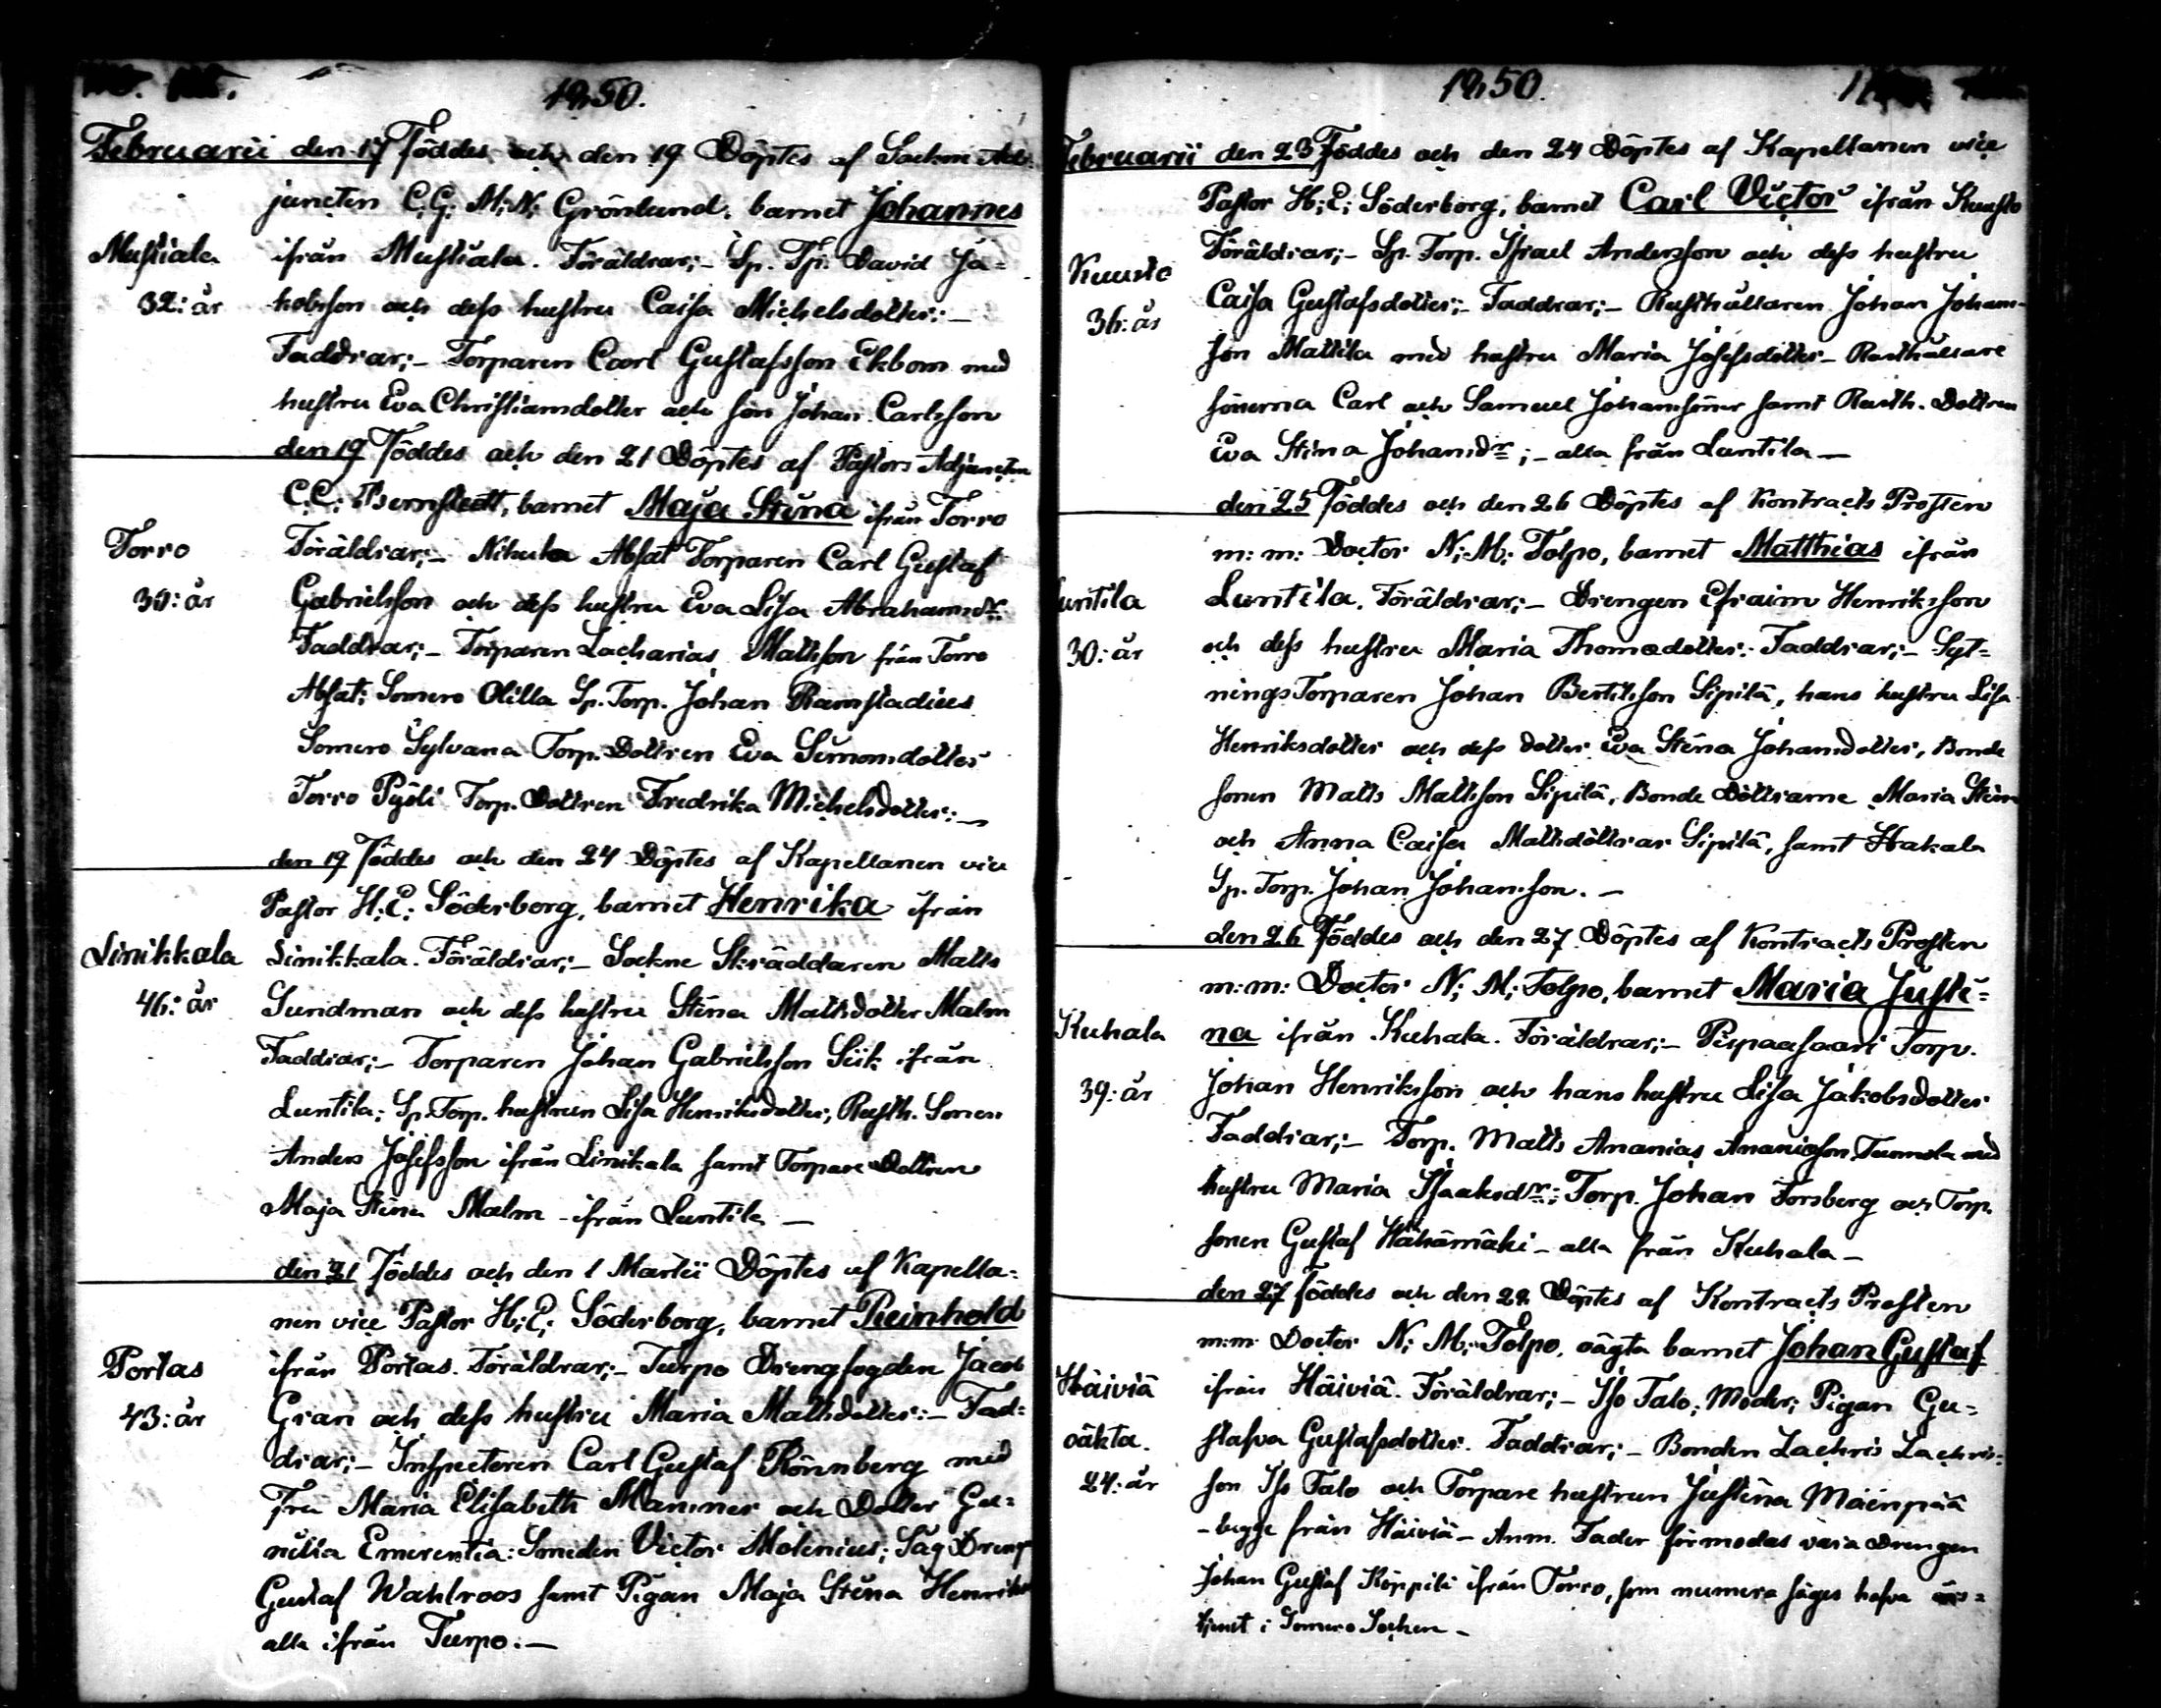 1850.
Februarii den 17 Föddes och den 19 Döptes af Sockne Ad-
juncten C: G: M: N: Grönlund, barnet Johannes
Mustiala
ifrån Mustiala. Föräldrar;- Sp. Tp: David Ja=
32: år
kobsson och dess hustru Caisa Michelsdotter:-
Faddrar;- Torparen Carl Gustafsson Ekbom med
hustru Eva Christiansdotter och son Johan Carlsson
den 19 Föddes och den 21 Döptes af Pastors Adjuncten
C: C: Bernstedt, barnet Maja Stina ifrån Torro
Torro
Föräldrar;- Nikula Afsat Torparen Carl Gustaf
30: år
Gabrielsson och dess hustru Eva Lisa Abrahamsdr:
Faddrar;- Torparen Zacharias Mattsson från Torro
Afsat; Somero Ollila Sp. Torp. Johan Ramstadius
Somero Sylvana Torp. Dottren Eva Simonsdotter
Torro Pyöli Torp. Dottren Fredrika Michelsdotter:-
den 19 Föddes och den 24 Döptes af Kapellanen vice
Pastor H: E: Söderborg, barnet Henrika ifrån
Linikkala
Linikkala. Föräldrar;- Sockne Skräddaren Matts
46: år
Sundman och dess hustru Stina Mattsdotter Malm
Faddrar;- Torparen Johan Gabrielsson Siik ifrån
Luntila; Sp. Torp. hustrun Lisa Henriksdotter, Rusth. Sonen
Anders Josefsson ifrån Linikala samt Torpare Dottren
Maja Stina Malm - ifrån Luntila -
den 21 Föddes och den 1 Martii Döptes af Kapella=
nen vice Pastor H: E: Söderborg, barnet Reinhold
Portas
ifrån Portas. Föräldrar;- Turpo Drengfogden Jacob
43: år
Gran och dess hustru Maria Mattsdotter:- Fad=
drar;- Inspectoren Carl Gustaf Rönnberg med
Fru Maria Elisabeth Mammer och Dotter Gu=
nilla Emerentia: Smeden Victor Molinius; Såg Dreng
Gustaf Wahlroos samt Pigan Maja Stina Henriks
alla ifrån Turpo:-
1850.
Februarii den 23 Föddes och den 24 Döptes af Kapellanen vice
Pastor H: E: Söderborg, barnet Carl Victor ifrån Kuusto
Kuusto
Föräldrar;- Sp. Torp. Israel Andersson och dess hustru
36: år
Caisa Gustafsdotter;- Faddrar;- Rusthållaren Johan Johans-
son Mattila med hustru Maria Josefsdotter - Rusthållare
sönerna Carl och Samuel Johanssöner samt Rusth. Dottren
Eva Stina Johansdr; - alla från Luntila -
den 25 Föddes och den 26 Döptes af Kontracts Prosten
m: m: Doctor N: M: Tolpo, barnet Matthias ifrån
Luntila
Luntila. Föräldrar;- Drengen Efraim Henriksson
30: år
och dess hustru Maria Thomædotter: Faddrar;- Syt=
nings Torparen Johan Bertilsson Sipilä, hans hustru Lisa
Henriksdotter och dess dotter Eva Stina Johansdotter, Bonde
sonen Matts Mattsson Sipilä, Bonde Döttrarne Maria Stina
och Anna Caisa Mattsdöttrar Sipilä, samt Hakala
Sp. Torp. Johan Johansson. -
den 26 Föddes och den 27 Döptes af Kontracts Prosten
m: m: Doctor N: M: Tolpo, barnet Maria Justi=
Kuhala
na ifrån Kuhala. Föräldrar;- Piipaasaari Torp.
39: år
Johan Henriksson och hans hustru Lisa Jakobsdotter
Faddrar;- Torp. Matts Ananias Ananiasson Tuomola med
hustru Maria Isaksdr; Torp. Johan Forsberg och Torp.
sonen Gustaf Hähämäki - alla från Kuhala -
den 27 Föddes och den 28 Döptes af Kontracts Prosten
m: m: Doctor N: M: Tolpo, oägta barnet Johan Gustaf
Häiviä
ifrån Häiviä. Föräldrar;- Iso Talo; Moder; Pigan Gu=
oäkta.
stafva Gustafsdotter. Faddrar;- Bonden Zachris Zachris=
24: år
son Iso Talo och Torpare hustrun Justina Mäenpää
- begge från Häiviä - Anm. Fader förmodas vara Drengen
Johan Gustaf Köppili ifrån Torro, som numera säges hafva års=
tjenst i Somero Sochen -